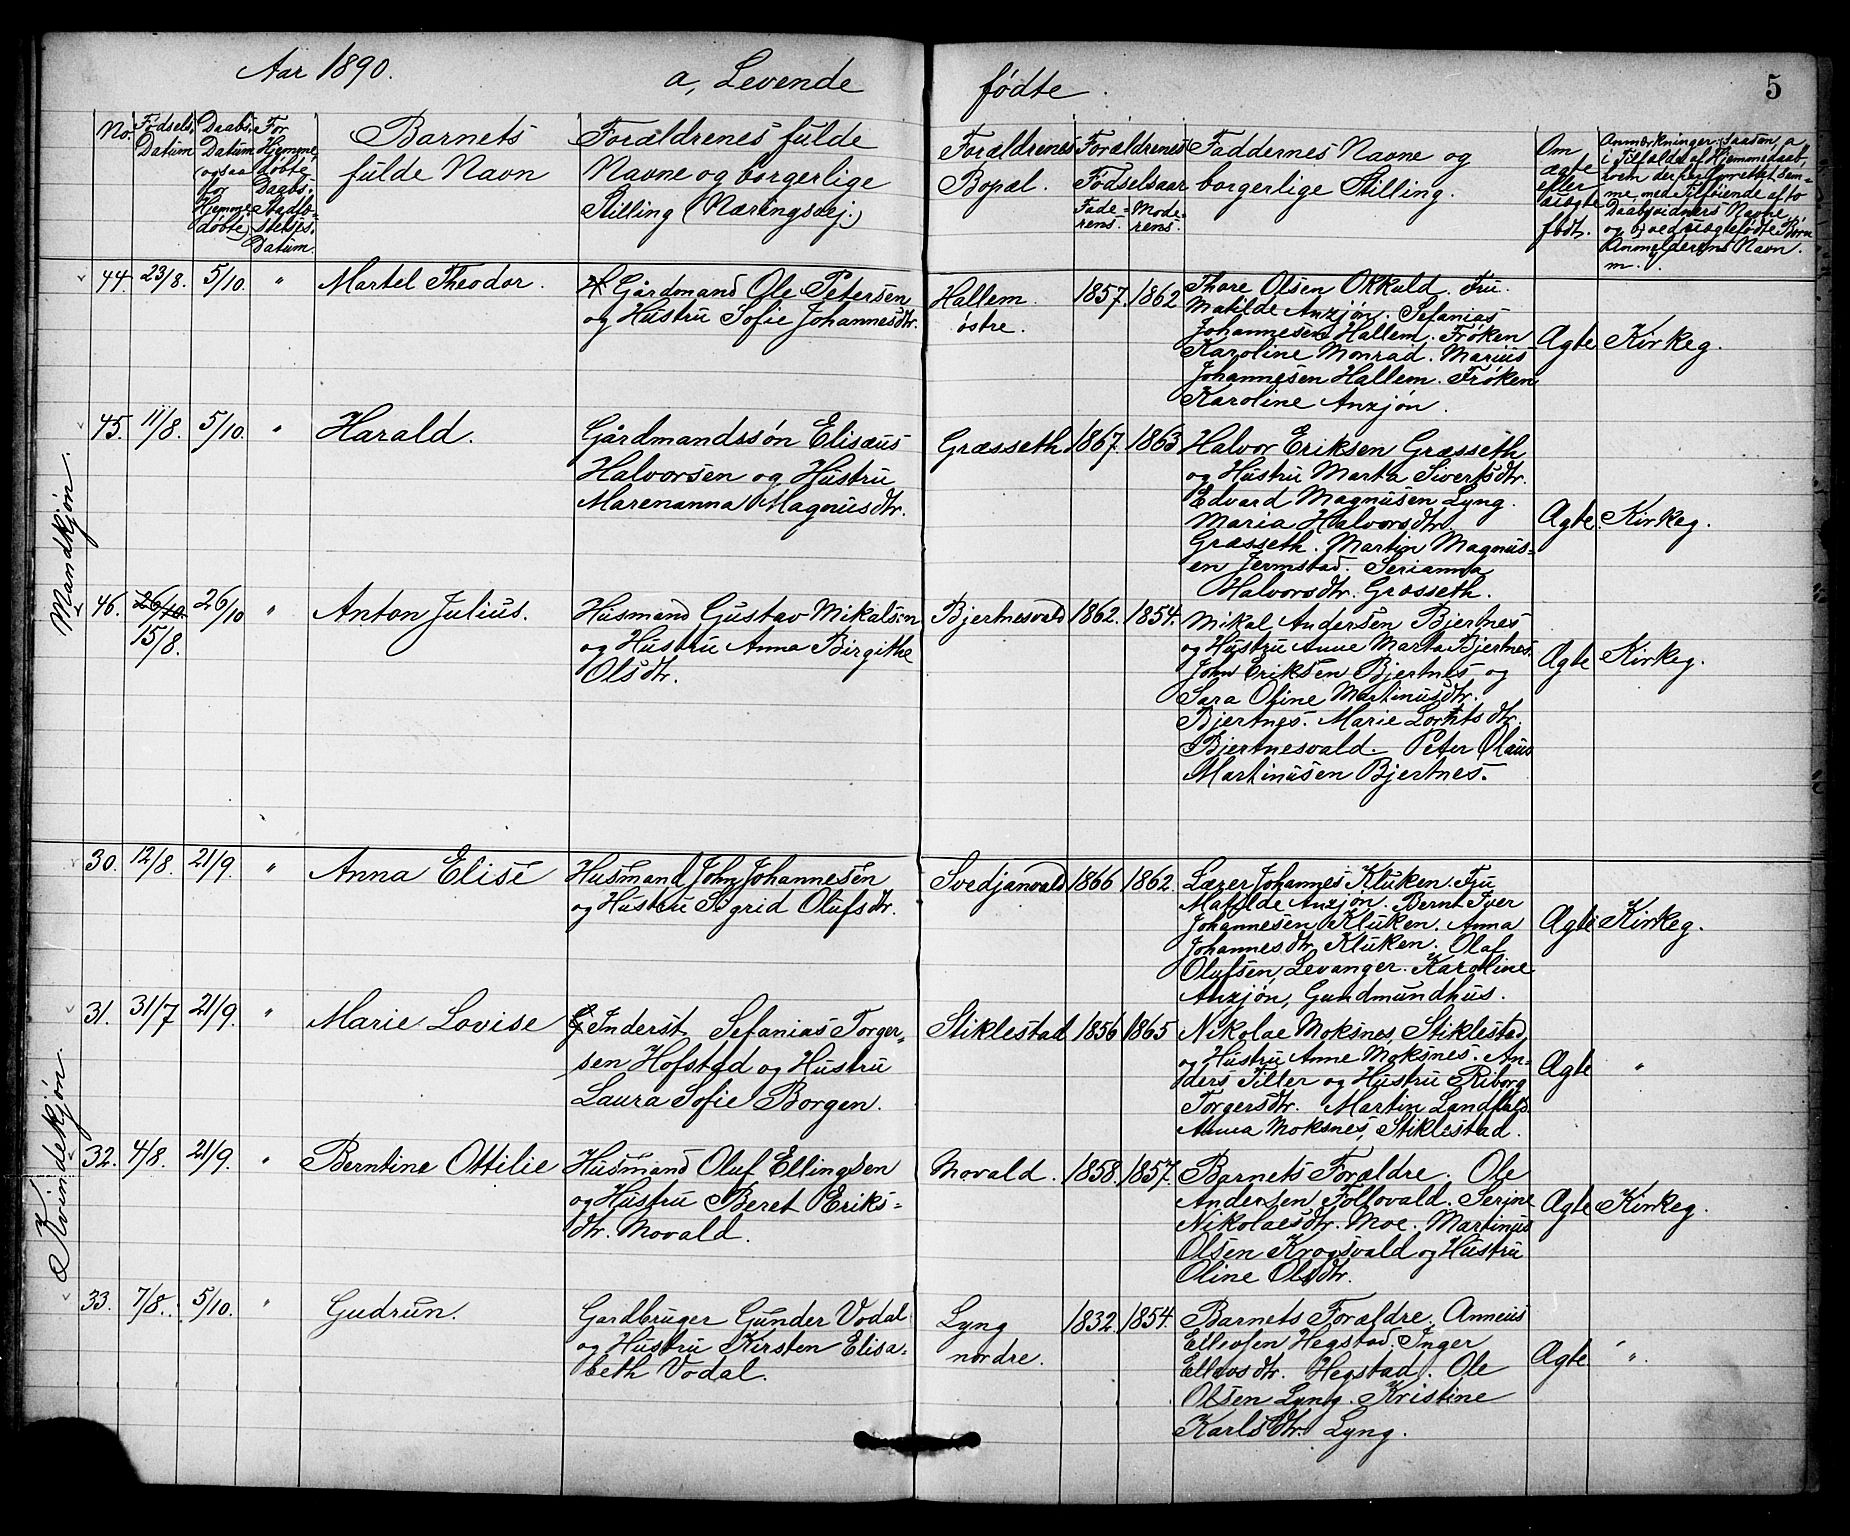 Aar 1890. a, Levende fødte. 5
No.
Fødsels-
Datum
Daabs-
Datum
(ogsaa
for
Hjemme-
døbte)
For
Hjemme-
døbte
Daabs-
Stadfæ-
stelses-
Datum.
Barnets
fulde Navn
Forældrenes fulde
Navne og borgerlige
Stilling (Næringsvej.)
Forældrenes
Bopæl.
Forældrenes
Fødselsaar
Fade-
rens.
Mode-
rens.
Faddernes Navne og
borgerlige Stilling.
Om
ægte
eller
uægte
født.
Anmærkninger. Saasom, a
i Tilfælde af Hjemmedaab,
hvem der har forrettet sam-
me, med Tilføiende af to
Daabsvidners Navne,
og b, ved uægtefødte Børn
Anmelderens Navn.
m.
Mandkjøn.
44. 23/8. 5/10. " Martel Theodor.
Gårdmand Ole Petersen
og Hustru Sofie Johannesdtr.
Hallem
østre.
1857. 1862
Thore Olsen Okkuld. Fru.
Matilde Anzjøn. Sefanias
Johannesen Hallem. Frøken
Karoline Monrad. Marius
Johannesen Hallem. Frøken
Karoline Anzjøn.
Ægte Kirkeg.
45. 11/8. 5/10. " Harald.
Gårdmandssøn Elisæus
Halvorsen og Hustru
Marenanna Magnusdtr.
Græsseth 1867. 1863
Halvor Eriksen Græsseth
og Hustru Marta Sivertsdtr.
Edvard Magnusen Lyng.
Maria Halvorsdtr.
Græsseth. Martin Magnus-
en Jermstad. Serianna
Halvorsdtr. Græsseth.
Ægte. Kirkeg.
46. 26/10. 26/10 " Anton Julius.
15/8.
Husmand Gustav Mikalsen
og Hustru Anna Birgithe
Olsdtr.
Bjertnesvald 1862. 1854.
Mikal Andersen Bjertnes
og Hustru Anne Marta Bjertnes.
John Eriksen Bjertnes og
Sara Oline Martinusdtr.
Bjertnes. Marie Lorntsdtr.
Bjertnesvald. Peter Olaus
Martinusen Bjertnes.
Ægte Kirkeg.
Kvindekjøn.
30. 12/8. 21/9. " Anna Elise
Husmand John Johannesen
og Hustru Sigrid Olufsdtr.
Svedjanvald 1866 1862.
Lærer Johannes Kluken. Fru
Mathilde Anzjøn. Bernt Iver
Johannesen Kluken. Anna
Johannesdtr. Kluken. Olaf
Olufsen, Levanger. Karoline
Anzjøn, Gundmundhus.
Ægte Kirkeg.
31. 31/7 21/9. " Marie Lovise
Inderst Sefanias Torger-
sen Hofstad og Hustru
Laura Sofie Borgen.
Stiklestad 1856 1865
Nikolae Moksnes, Stiklestad
og Hustru Anne Moksnes. An-
ders Tiller og Hustru Riborg
Torgersdtr. Martin Landfald.
Anna Moksnes, Stiklestad.
Ægte "
32. 4/8. 21/9. " Berntine Ottilie
Husmand Oluf Ellingsen
og Hustru Beret Eriks-
dtr. Movald.
Movald. 1858. 1857.
Barnets Forældre. Ole
Andersen Follovald. Serine
Nikolaesdtr. Moe. Martinus
Olsen Krogsvald og Hustru
Oline Olsdtr.
Ægte Kirkeg.
33. 7/8. 5/10. " Gudrun.
Gardbruger Gunder Vodal
og Hustru Kirsten Elisa-
beth Vodal.
Lyng
nordre.
1832. 1854.
Barnets Forældre. Anneus
Ellevsen Hegstad. Inger
Ellevsdtr. Hegstad. Ole
Olsen Lyng. Kristine
Karlsdtr. Lyng.
Ægte "